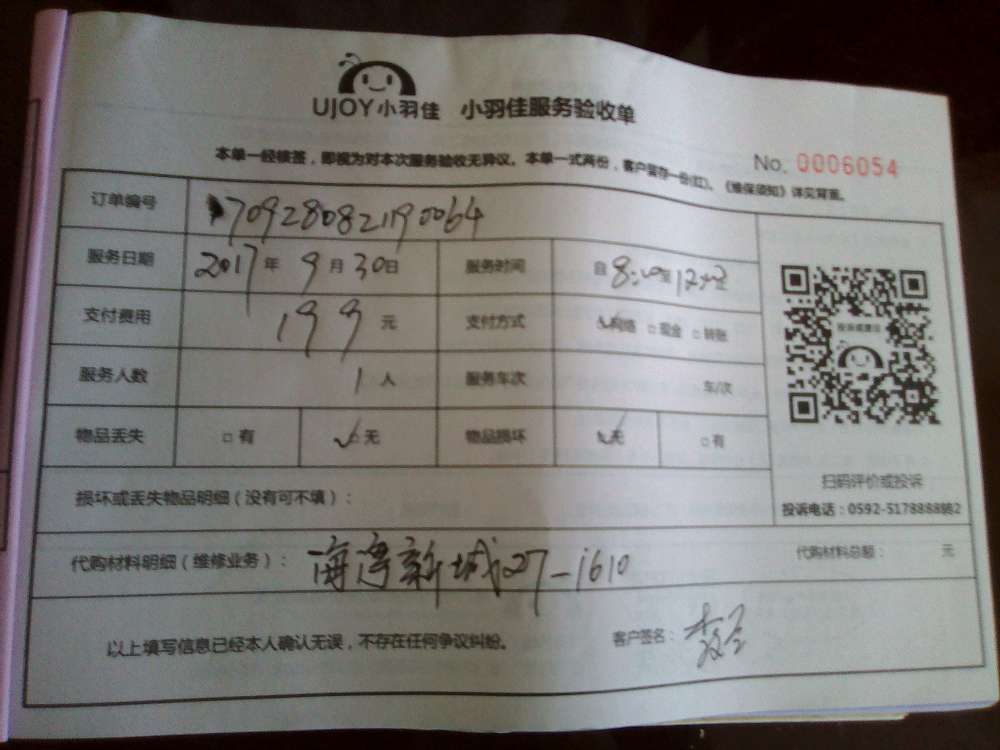 UJOY小羽佳 小羽佳服务验收单
本单一经核签，即视为对本次服务验收无异议。本单一式两份，客户留存一份(红)。《维保须知》详见背面。
No. 0006054
订单编号 1709280821190064
服务日期 2017年9月30日 服务时间 自8:00至12
支付费用 199元 支付方式 ☑网络 □现金 □转账
服务人数 1人 服务车次 车/次
物品丢失 □有 ☑无 物品损坏 ☑无 □有
投诉或建议
扫码评价或投诉
投诉电话：0592-5178888转2
损坏或丢失物品明细（没有可不填）：
代购材料明细（维修业务）： 海湾新城27-1610 代购材料总额： 元
以上填写信息已经本人确认无误，不存在任何争议纠纷。 客户签名：